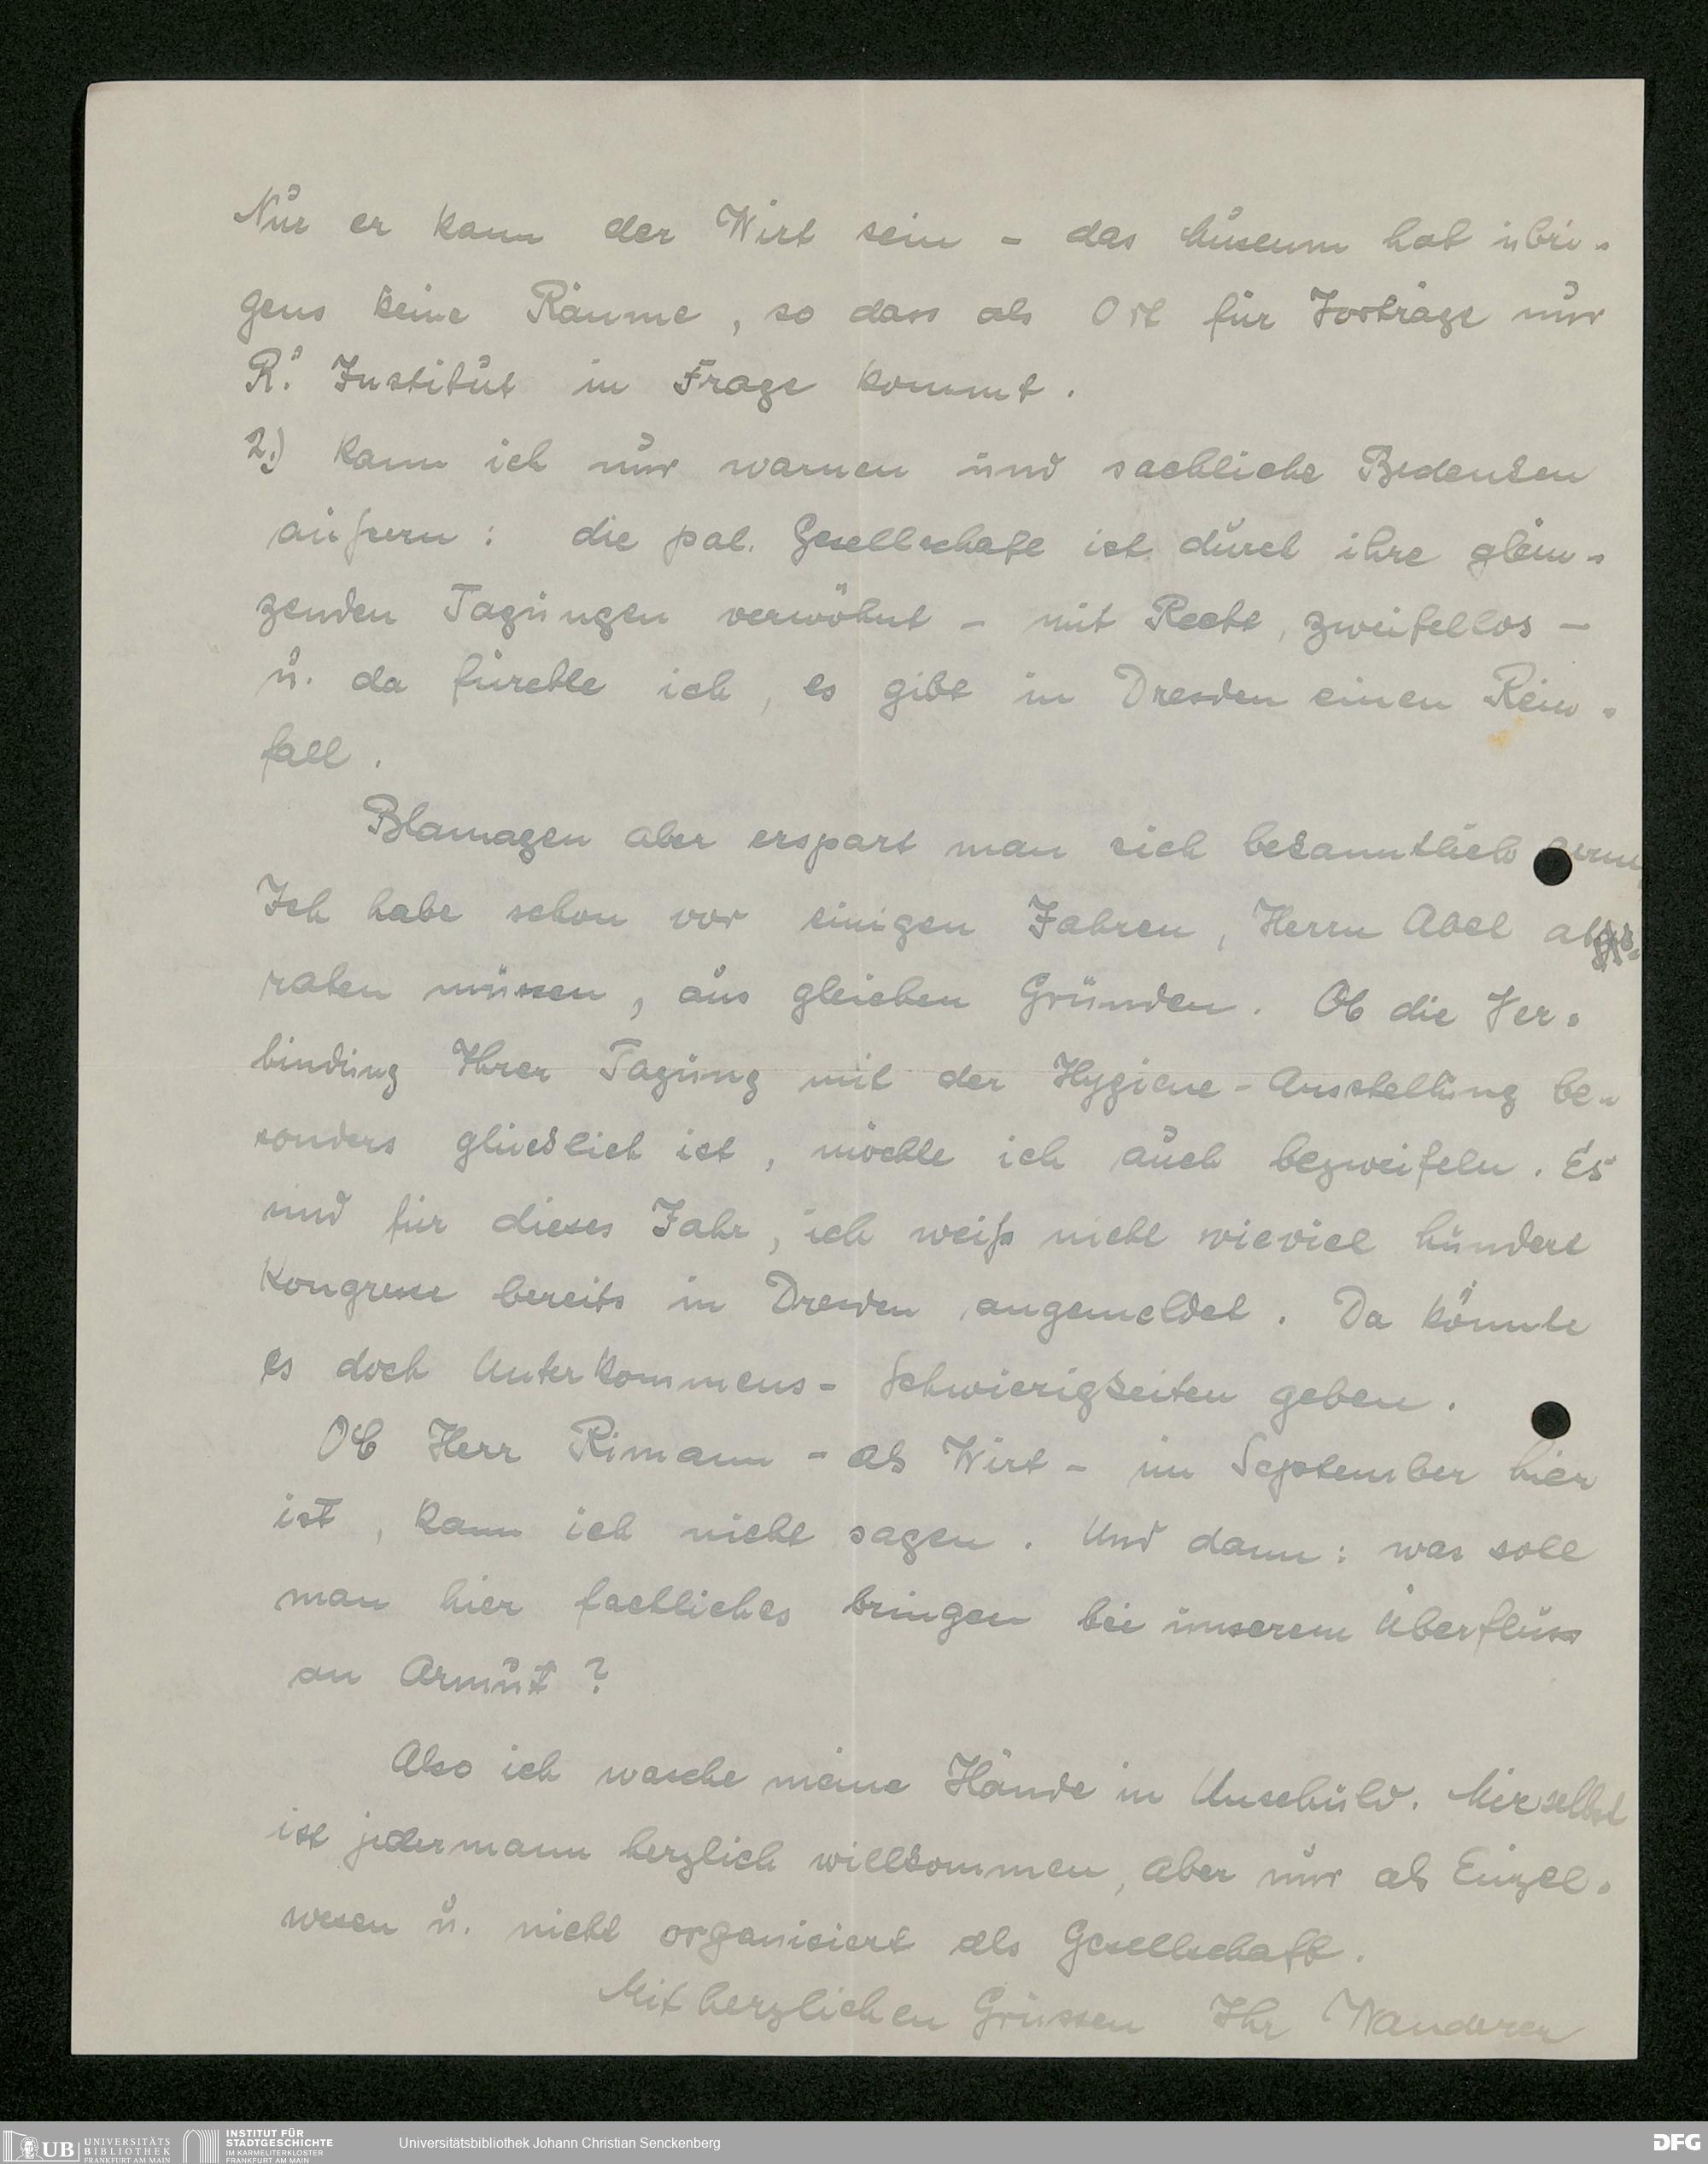 Nur er kann der Wirt sein - das Museum hat übri-
gens keine Räume, so dass als Ort für Vorträge nur
R's Institut in Frage kommt.
2.) kann ich nur warnen und sachliche Bedenken
äußern: die pal. Gesellschaft ist durch ihre glän-
zenden Tagungen verwöhnt - mit Recht, zweifellos -
u. da fürchte ich, es gibt in Dresden einen Rein-
fall.
Blamagen aber erspart man sich bekanntlich gern.
Ich habe schon vor einigen Jahren, Herrn Abel abge-
raten müssen, aus gleichen Gründen. Ob die Ver-
bindung Ihrer Tagung mit der Hygiene-Ausstellung be-
sonders glücklich ist, möchte ich auch bezweifeln. Es
sind für dieses Jahr, ich weiß nicht wieviel hundert
Kongresse bereits in Dresden angemeldet. Da könnte
es doch Unterkommens-Schwierigkeiten geben.
Ob Herr Rimann - als Wirt - im September hier
ist, kann ich nicht sagen. Und dann: was soll
man hier fachliches bringen bei unserem Überfluss
an Armut?
Also ich wasche meine Hände in Unschuld. Mir selbst
ist jedermann herzlich willkommen, aber nur als Einzel-
wesen u. nicht organisiert als Gesellschaft.
Mit herzlichen Grüssen Ihr Wanderer
UB UNIVERSITÄTS
BIBLIOTHEK
FRANKFURT AM MAIN
INSTITUT FÜR
STADTGESCHICHTE
IM KARMELITERKLOSTER
FRANKFURT AM MAIN
Universitätsbibliothek Johann Christian Senckenberg
DFG